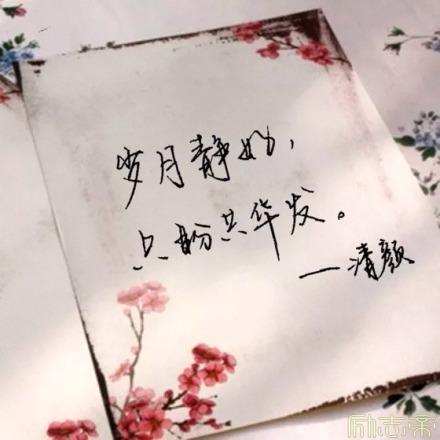 岁月静好，
只盼共华发。
—清颜
励志帝